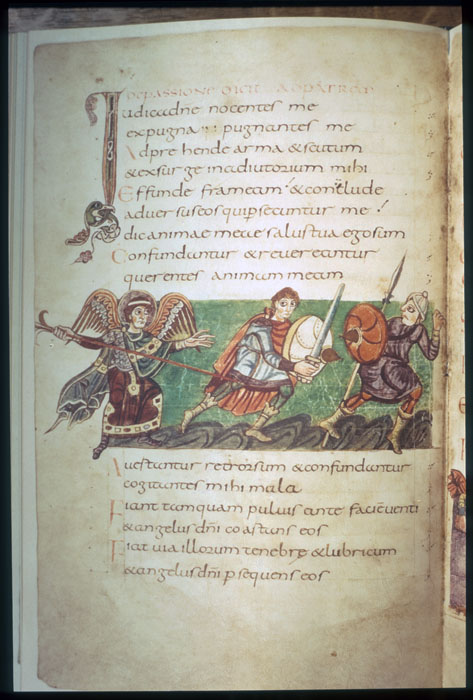 hoc passione dicit ad patrem
Iudica dne nocentes me
expugna pugnantes me
Adprehende arma & scutum
& exsurge in adiutorium mihi
Effunde frameam & conclude
aduersus eos qui p̄secuntur me
dic animae meae salus tua ego sum
Confundantur & reuereantur
querentes animam meam
Auertantur retrorsum & confundantur
cogitantes mihi mala
Fiant tamquam puluis ante faciē uenti
& angelus dn̄i coastans eos
Fiat uia illorum tenebrę & lubricum
& angelus dn̄i p̄sequens eos